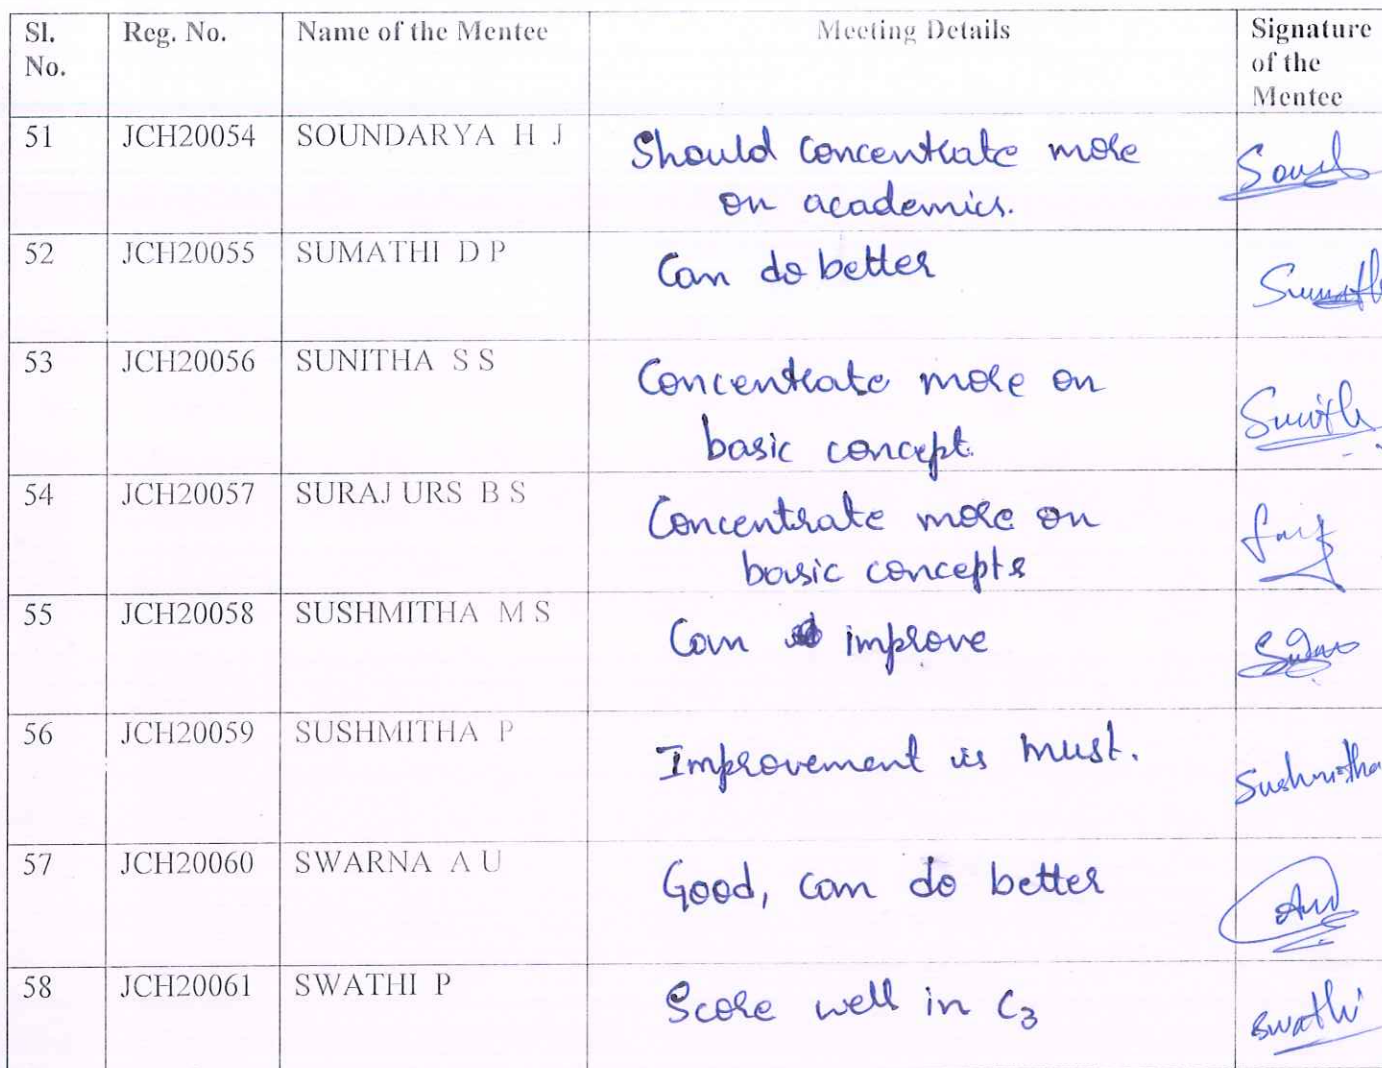 Sl. No. Reg. No. Name of the Mentee Meeting Details Signature of the Mentee
51 JCH20054 SOUNDARYA H J Should concentrate more
on academics.
52 JCH20055 SUMATHI D P Can do better
53 JCH20056 SUNITHA S S Concentrate more on
basic concept.
54 JCH20057 SURAJ URS B S Concentrate more on
basic concepts
55 JCH20058 SUSHMITHA M S Can improve
56 JCH20059 SUSHMITHA P Improvement is must. Sushmitha
57 JCH20060 SWARNA A U Good, can do better
58 JCH20061 SWATHI P Score well in C3 Swathi